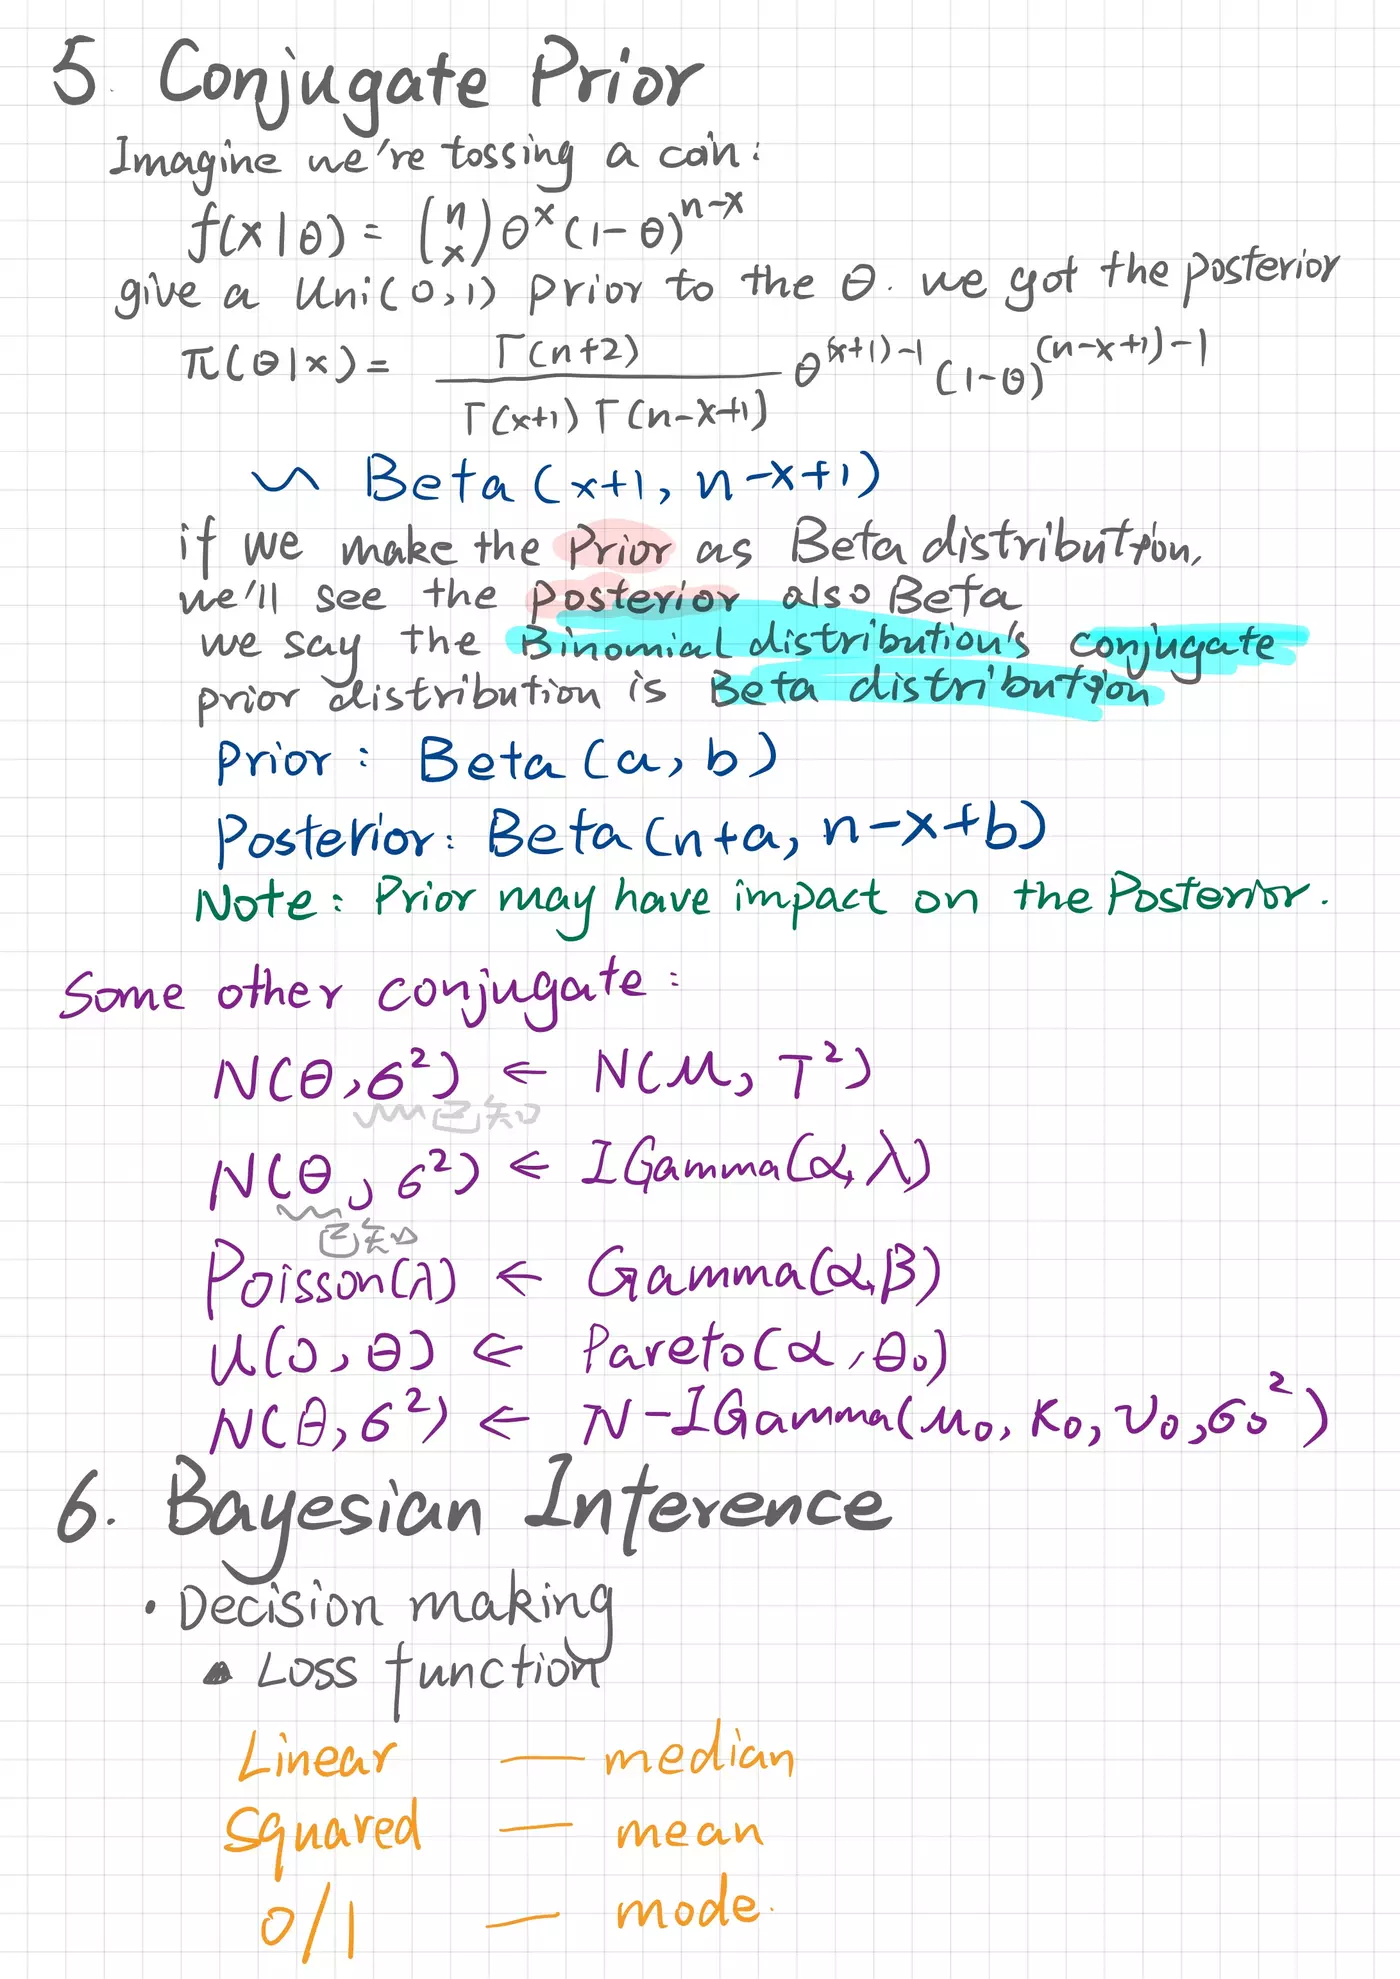 5. Conjugate Prior
Imagine we're tossing a coin:
f(x|θ) = (n x) θ^x (1-θ)^{n-x}
give a Uni(0,1) prior to the θ. we got the posterior
π(θ|x) = Γ(n+2) / Γ(x+1) Γ(n-x+1) θ^{(x+1)-1} (1-θ)^{(n-x+1)-1}
~ Beta(x+1, n-x+1)
if we make the Prior as Beta distribution,
we'll see the posterior also Beta
we say the Binomial distribution's conjugate
prior distribution is Beta distribution
Prior: Beta(a, b)
Posterior: Beta(n+a, n-x+b)
Note: Prior may have impact on the Posterior.
Some other conjugate:
N(θ, σ²) ← N(μ, τ²)
已知
N(θ, σ²) ← IGamma(α, λ)
已知
Poisson(λ) ← Gamma(α, β)
U(0, θ) ← Pareto(α, θ₀)
N(θ, σ²) ← N-IGamma(μ₀, κ₀, ν₀, σ₀²)
6. Bayesian Inference
• Decision making
▲ Loss function
Linear — median
Squared — mean
0/1 — mode.